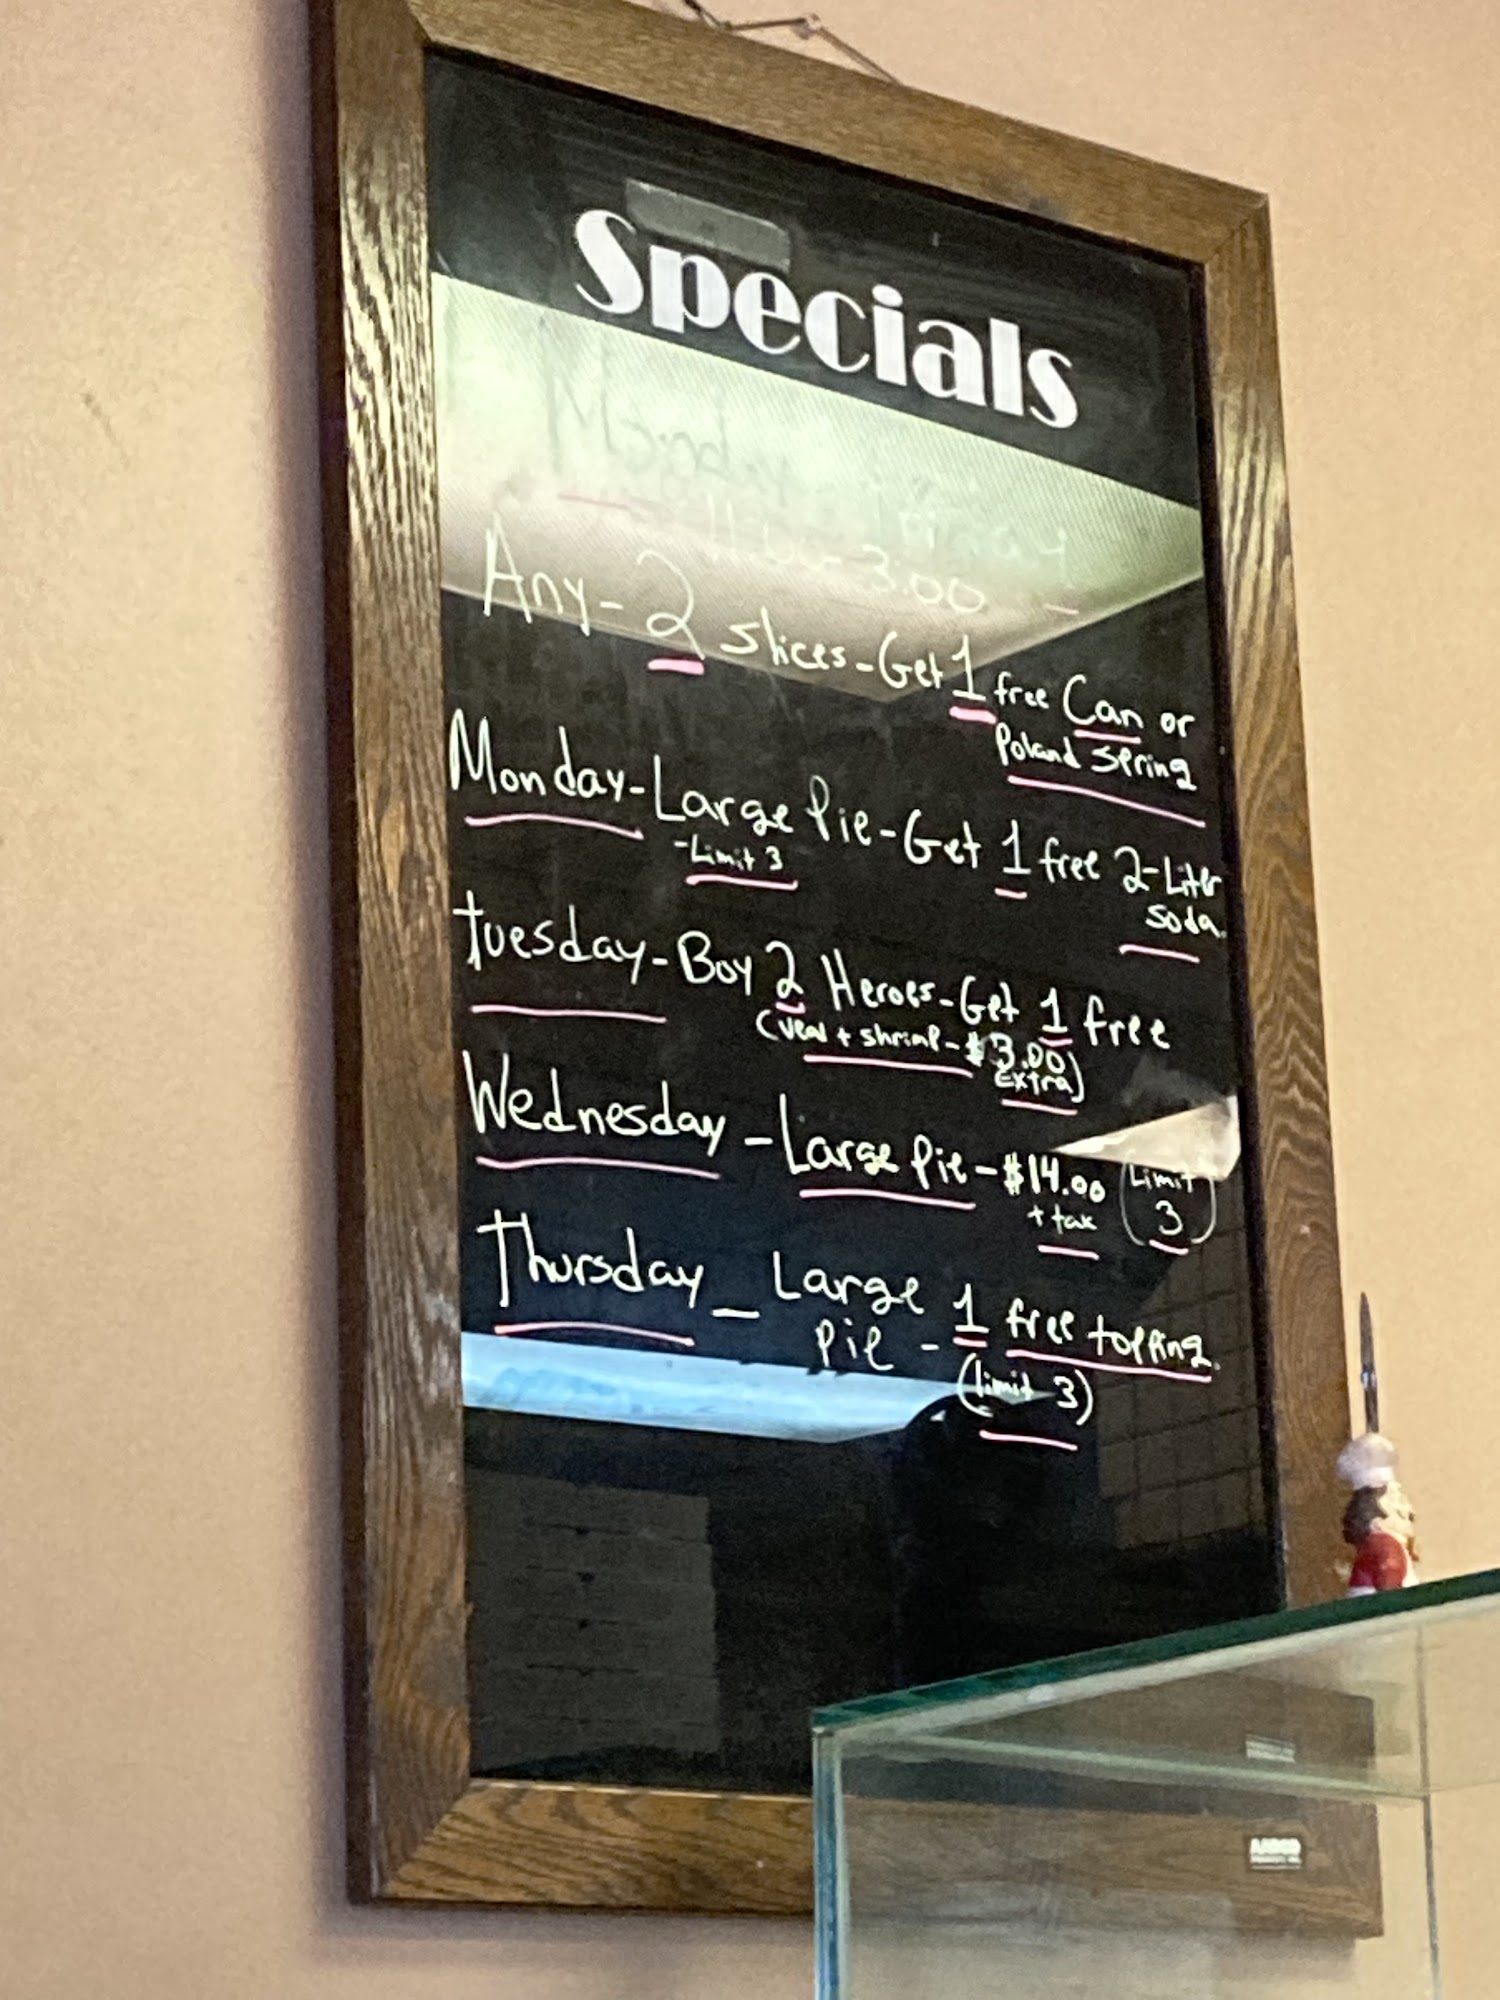 Specials
Monday - Friday
11:00-3:00
Any-2 slices-Get 1 free Can or
Poland Spring
Monday-Large Pie-Get 1 free 2-Liter
-Limit 3
soda.
Tuesday-Boy 2 Heroes-Get 1 free
(veal + shrimp-$3.00
Extra)
Wednesday-Large Pie-$14.00 (Limit
+ tax
3)
Thursday_Large
Pie - 1 free topping.
(limit 3)